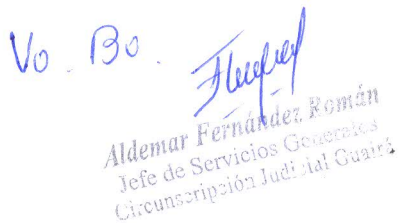 Vo. Bo.
Aldemar Fernández Román
Jefe de Servicios Generales
Circunscripción Judicial Guairá